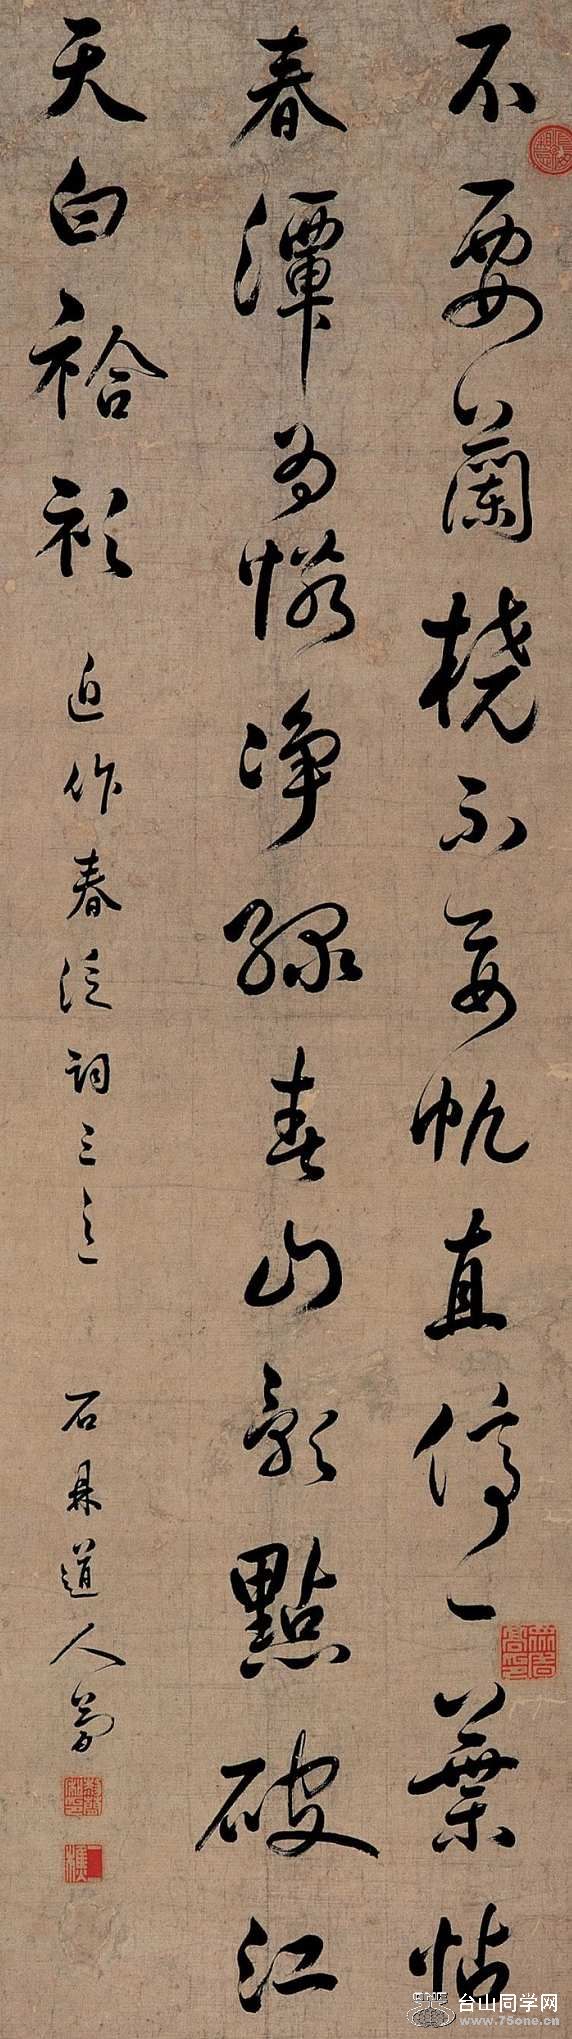 不要蘭橈不要帆直停一葉怗
春潭為憐淨綠春山影點破江
天白袷衫
近作春泛詞三之一
石林道人
台山同学网
www.75one.cn